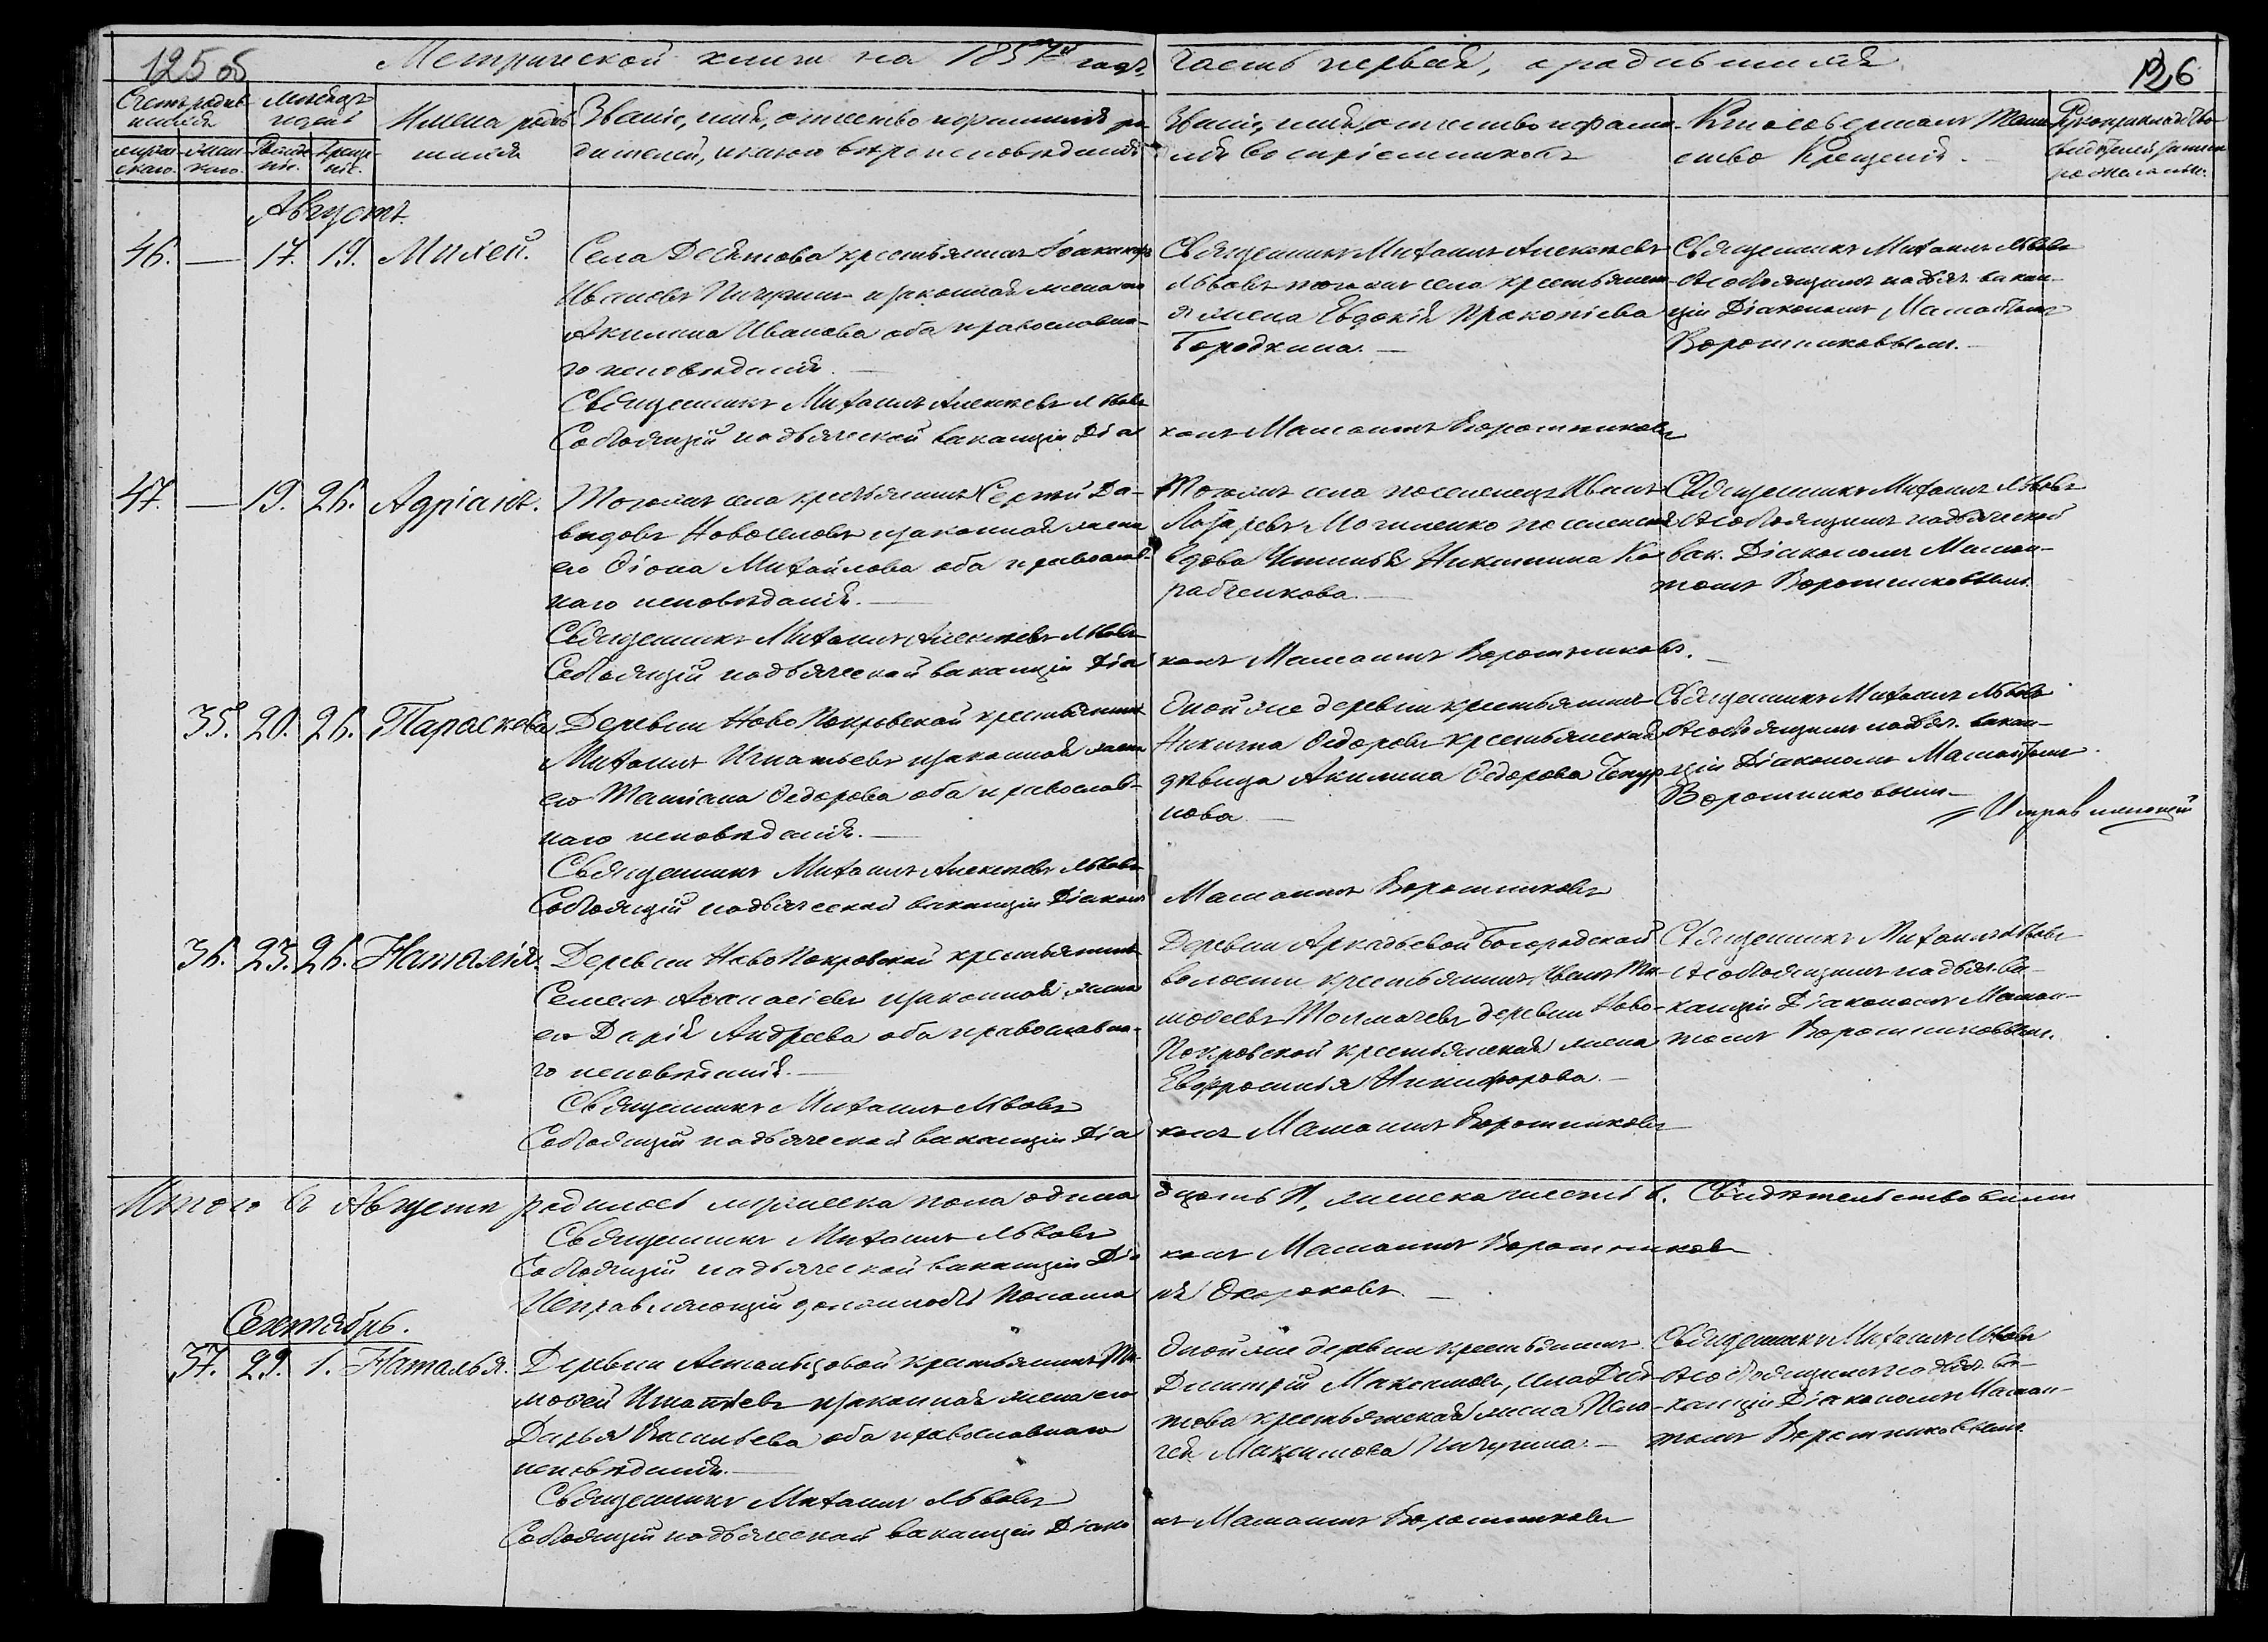 125 об
126
Метрической книги на 1857й годъ, часть первая, о родившихся
Счетъ родив-
шихся
Мѣсяцъ
и день
Имена родив-
шихся
Званіе, имя, отчество и фамилія ро-
дителей, и какого вѣроисповѣданія
Званіе, имя, отчество и фами-
лія воспріемниковъ
Кто совершалъ таин-
ство крещенія.
Рукоприкладство
свидѣтелей записи
по желанію.
Августъ.
46. — 17. 19. Михей.
Села Десятова крестьянинъ
Ивановъ Пичугинъ и законная жена его
Акилина Иванова оба православна-
го исповѣданія. —
Священникъ Михаилъ Алексѣевъ Львовъ
Состоящій на дьяческой вакансіи Діа
конъ Мамонтъ Ворошниковъ
Священникъ Михаилъ Алексѣевъ
Львовъ того жъ села крестьянин-
я жена Евдокія Прокопіева
Бородкина. —
Священникъ Михаилъ Львовъ
съ состоящимъ на дьяч. вакан-
ціи Діакономъ Мамонтомъ
Ворошниковымъ. —
47. — 19. 26. Адріанъ.
Того жъ села крестьянинъ Сергѣй Да-
видовъ Новоселовъ и законная жена
его Ѳіона Михайлова оба православ-
наго исповѣданія. —
Священникъ Михаилъ Алексѣевъ Львовъ
Состоящій на дьяческой вакансіи Діа
конъ Мамонтъ Ворошниковъ. —
Того жъ села поселенецъ Иванъ
Лазаревъ поселенская
вдова Никитина Ко-
рабченкова. —
Священникъ Михаилъ Львовъ
съ состоящимъ на дьяческой
вак. Діакономъ Мамон-
томъ Ворошниковымъ.
35. 20. 26. Параскева
Деревни Ново Покровской крестьянинъ
Михаилъ Игнатьевъ и законная жена
его Татіана Ѳедорова оба православ-
наго исповѣданія. —
Священникъ Михаилъ Алексѣевъ Львовъ
Состоящій на дьяческой вакансіи Діаконъ
Мамонтъ Ворошниковъ
Оной же деревни крестьянинъ
Никита Ѳедоровъ крестьянская
дѣвица Акилина Ѳедорова Чекур-
нова. —
Священникъ Михаилъ Львовъ
съ состоящимъ на дьяч. вакан-
ціи Діакономъ Мамонтомъ
Ворошниковымъ —
36. 23. 26. Наталія.
Деревни Ново Покровской крестьянинъ
Семенъ Аѳанасіевъ и законная жена
его Дарія Андреева оба православна-
го исповѣданія. —
Священникъ Михаилъ Львовъ
Состоящій на дьяческой вакансіи Діа
конъ Мамонтъ Ворошниковъ
Деревни Аркадьевой Богородской
волости крестьянинъ Иванъ Ти-
моѳеевъ Толмачевъ деревни Ново-
Покровской крестьянская жена
Евфросинья Никифорова. —
Священникъ Михаилъ Львовъ
съ состоящимъ на дьяч. ва-
кансіи Діакономъ Мамон-
томъ Ворошниковымъ.
Итого въ Августѣ родилось мужеска пола одина
дцать 11, женска шесть 6. Свидѣтельствовали
Священникъ Михаилъ Львовъ
Состоящій на дьяческой вакансіи Діа
конъ Мамонтъ Ворошниковъ
Исправляющій должность Понома
ря Окороковъ. —
Сентябрь.
37. 29. 1. Наталья.
Деревни Астальцовой крестьянинъ Ти-
моѳей Игнатіевъ и законная жена его
Дарья Васильева оба православнаго
исповѣданія. —
Священникъ Михаилъ Львовъ
Состоящій на дьяческой вакансіи Діако
нъ Мамонтъ Ворошниковъ
Оной же деревни крестьянинъ
Димитрій Максимовъ, села Деся-
това крестьянская жена Пела-
гея Максимова Пичугина. —
Священникъ Михаилъ Львовъ
съ состоящимъ на дьяч. ва-
кансіи Діакономъ Мамон-
томъ Ворошниковымъ.